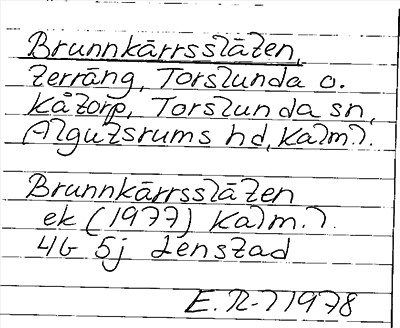 Brunnkärrssläten,
terräng, Torslunda o.
Kåtorp, Torslunda sn,
Algutsrums hd, Kalm.l.
Brunnkärrssläten
ek (1977) Kalm.l.
4G 5j Lenstad
E.R-l 1978